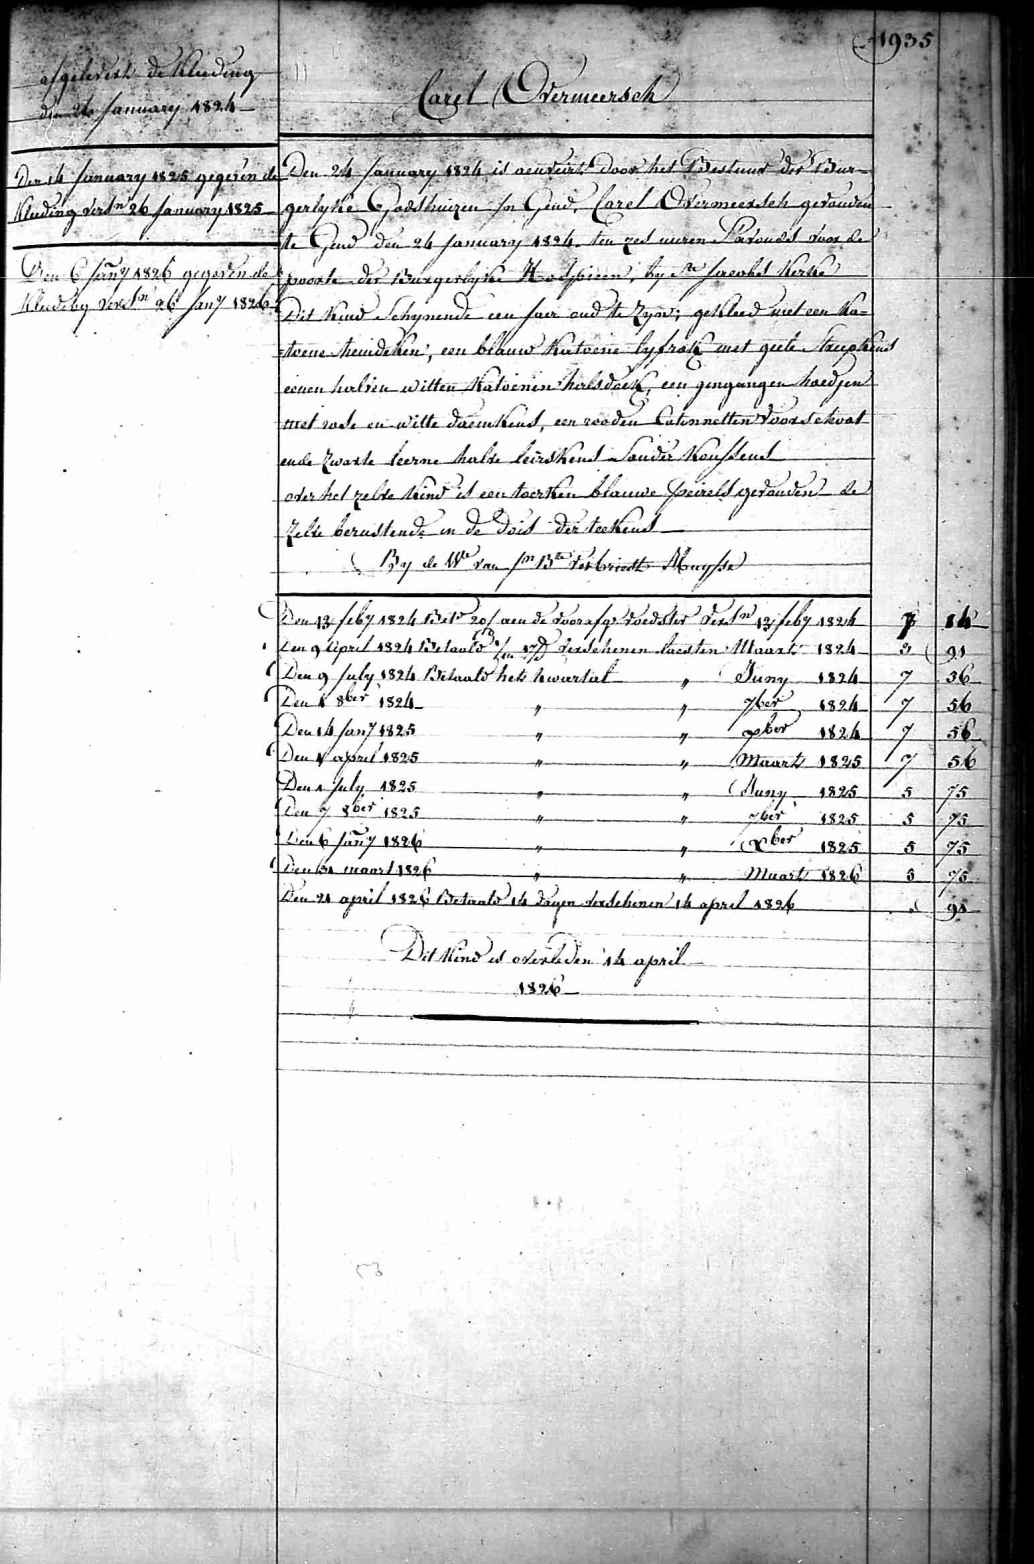 1935
afgelevert de Kleeding
den 26 January 1824
Carel Overmeersch
Den 14 January 1825 gegeven de
Kleeding versn 26 January 1825
Den 6 Jany 1826 gegeven de
Kleedeby versn 26 Jany 1826
Den 24 January 1824 is aenveirt door het Bestuur der Bur-
gerlyke Godshuizen in Gend, Carel Overmeersch gevonden
te Gend den 24 January 1824 ten zes uren s'avonds voor de
poorte der Burgerlyke Hospicien, by Ste Jacobs Kerke
Dit Kind Schynende een jaer oud te zyn, gekleed met een Ka-
toene hemdeken, een blauw Katoene lyfrok met geele Streepkens
eenen halven witten Katoenen halsdoek, een gengangen hoedjen
met rode en witte daemkens, een rooden Catonnetten Voorschoot
ende zwarte leerne halve leirskens Sonder Koussens
over het zelve Kind is een toerken blauwe peirels gevonden de
zelve berustende in de dois der teekens
By de We van Jn Bte Verbriest Muysse
Den 13 feby 1824 Bete 20/ aen de voorafge voedster versn 13 feby 1824 7 14
Den 9 April 1824 Betaald verschenen laesten Maart 1824 3 91
Den 9 July 1824 Betaald het kwartal " Juny 1824 7 56
Den 1 8ber 1824 " " 7ber 1824 7 56
Den 14 Jany 1825 " " xber 1824 7 56
Den 1 april 1825 " " Maart 1825 7 56
Den 1 July 1825 " " Juny 1825 5 75
Den 7 8ber 1825 " " 7ber 1825 5 75
Den 6 Jany 1826 " " xber 1825 5 75
Den 31 maart 1826 " " Maart 1826 5 75
Den 21 april 1826 Betaald 14 dagen verschenen 14 april 1826 " 91
Dit Kind is overleden 14 april
1826